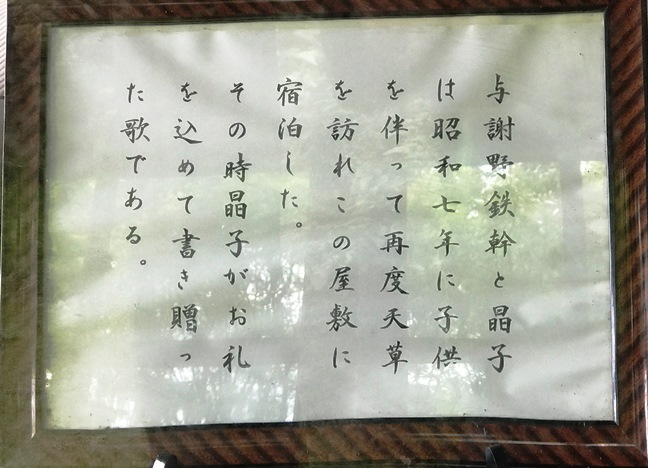 与謝野鉄幹と晶子
は昭和七年に子供
を伴って再度天草
を訪れこの屋敷に
宿泊した。
その時晶子がお礼
を込めて書き贈っ
た歌である。